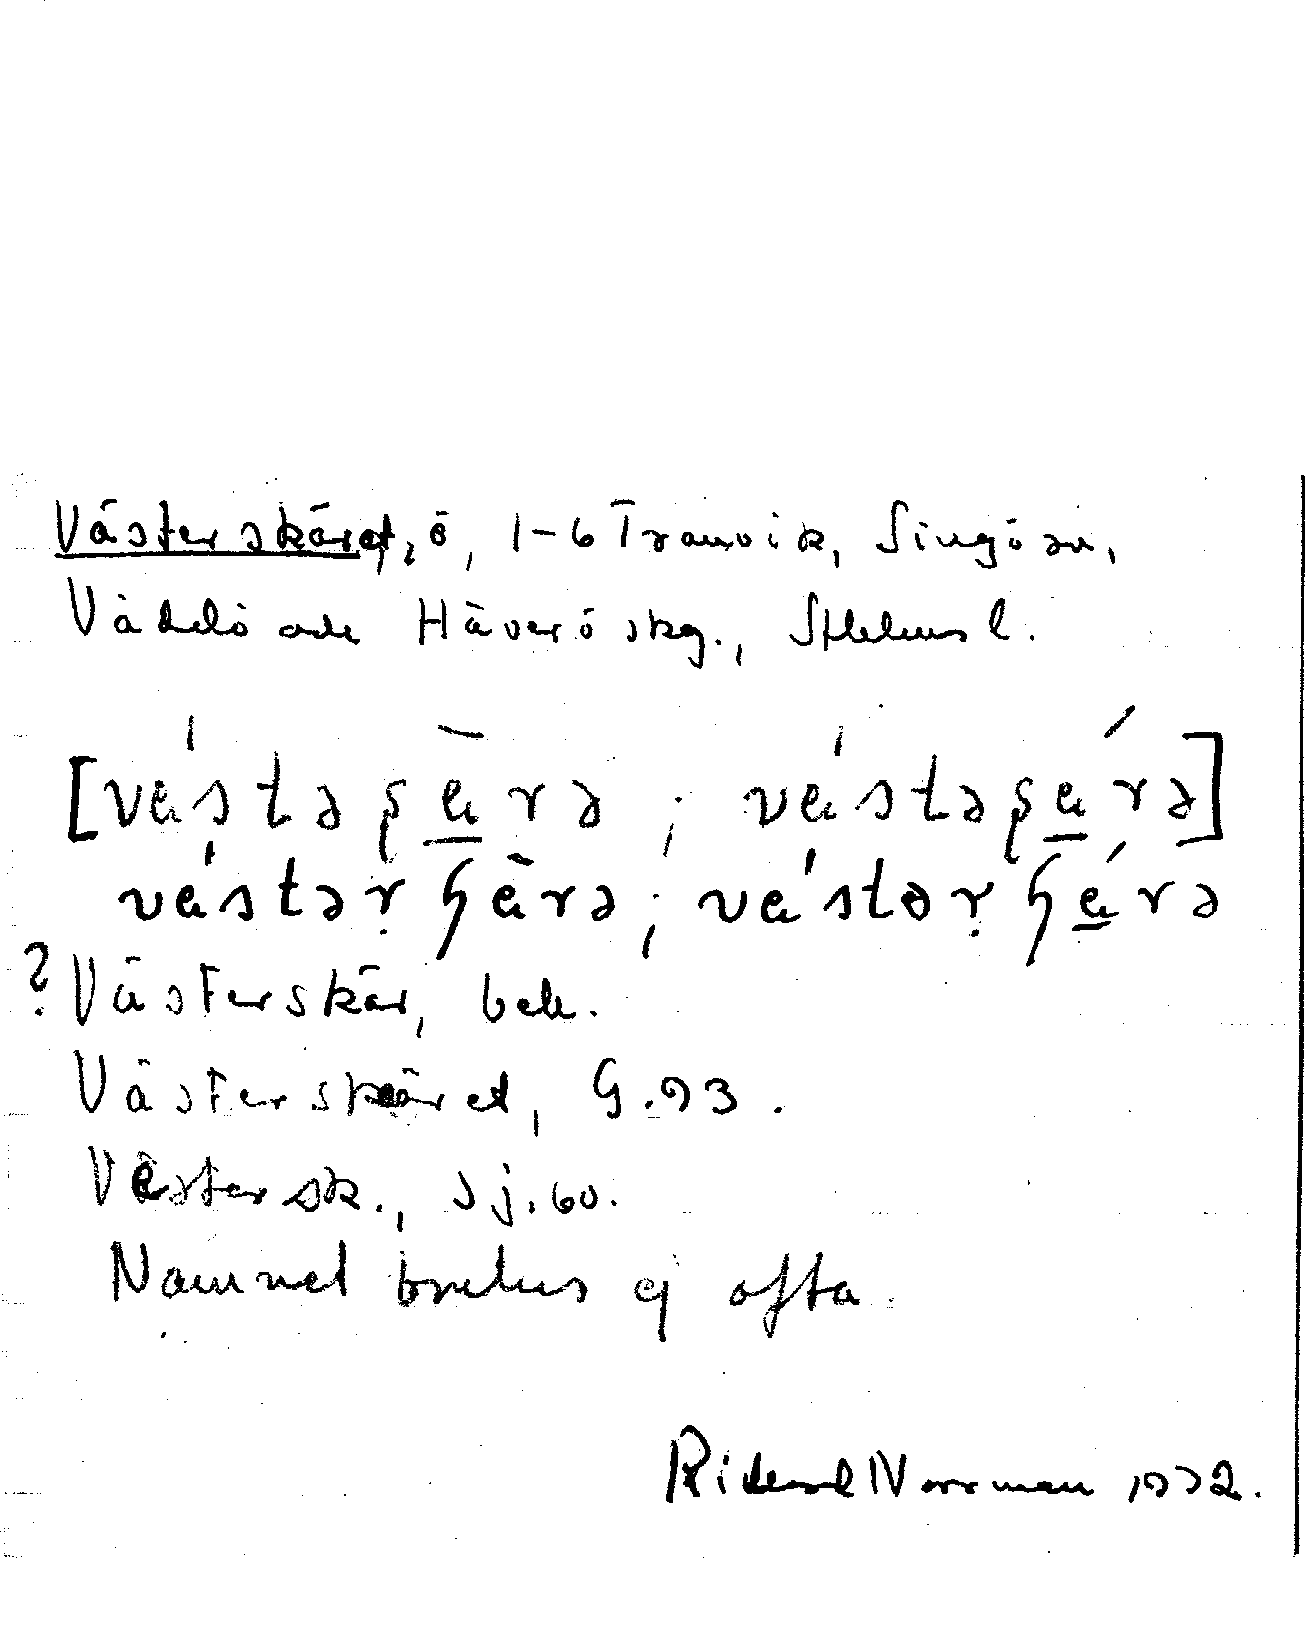 Västerskäret, ö, 1-6 Tranvik, Singö sn,
Väddö och Häverö skg., Sthlms l.
[vástəʂὰrə ; vástəʂárə]
västərɧärə; västərɧärə
? Västerskär, bek.
Västerskäret, G.93.
Västersk., Sj.60.
Namnet brukas ej ofta.
Rickard Norrman 1932.